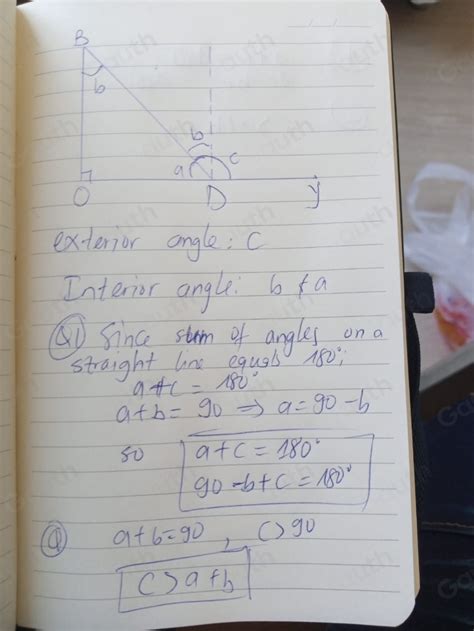 B
b
b
a
c
O
D
y
exterior angle: C
Interior angle: b & a
Q1) Since sum of angles on a
straight line equals 180°;
a+c = 180°
a+b = 90 => a=90-b
so
a+c = 180°
90-b+c = 180°
Q
a+b=90, C>90
C>a+b